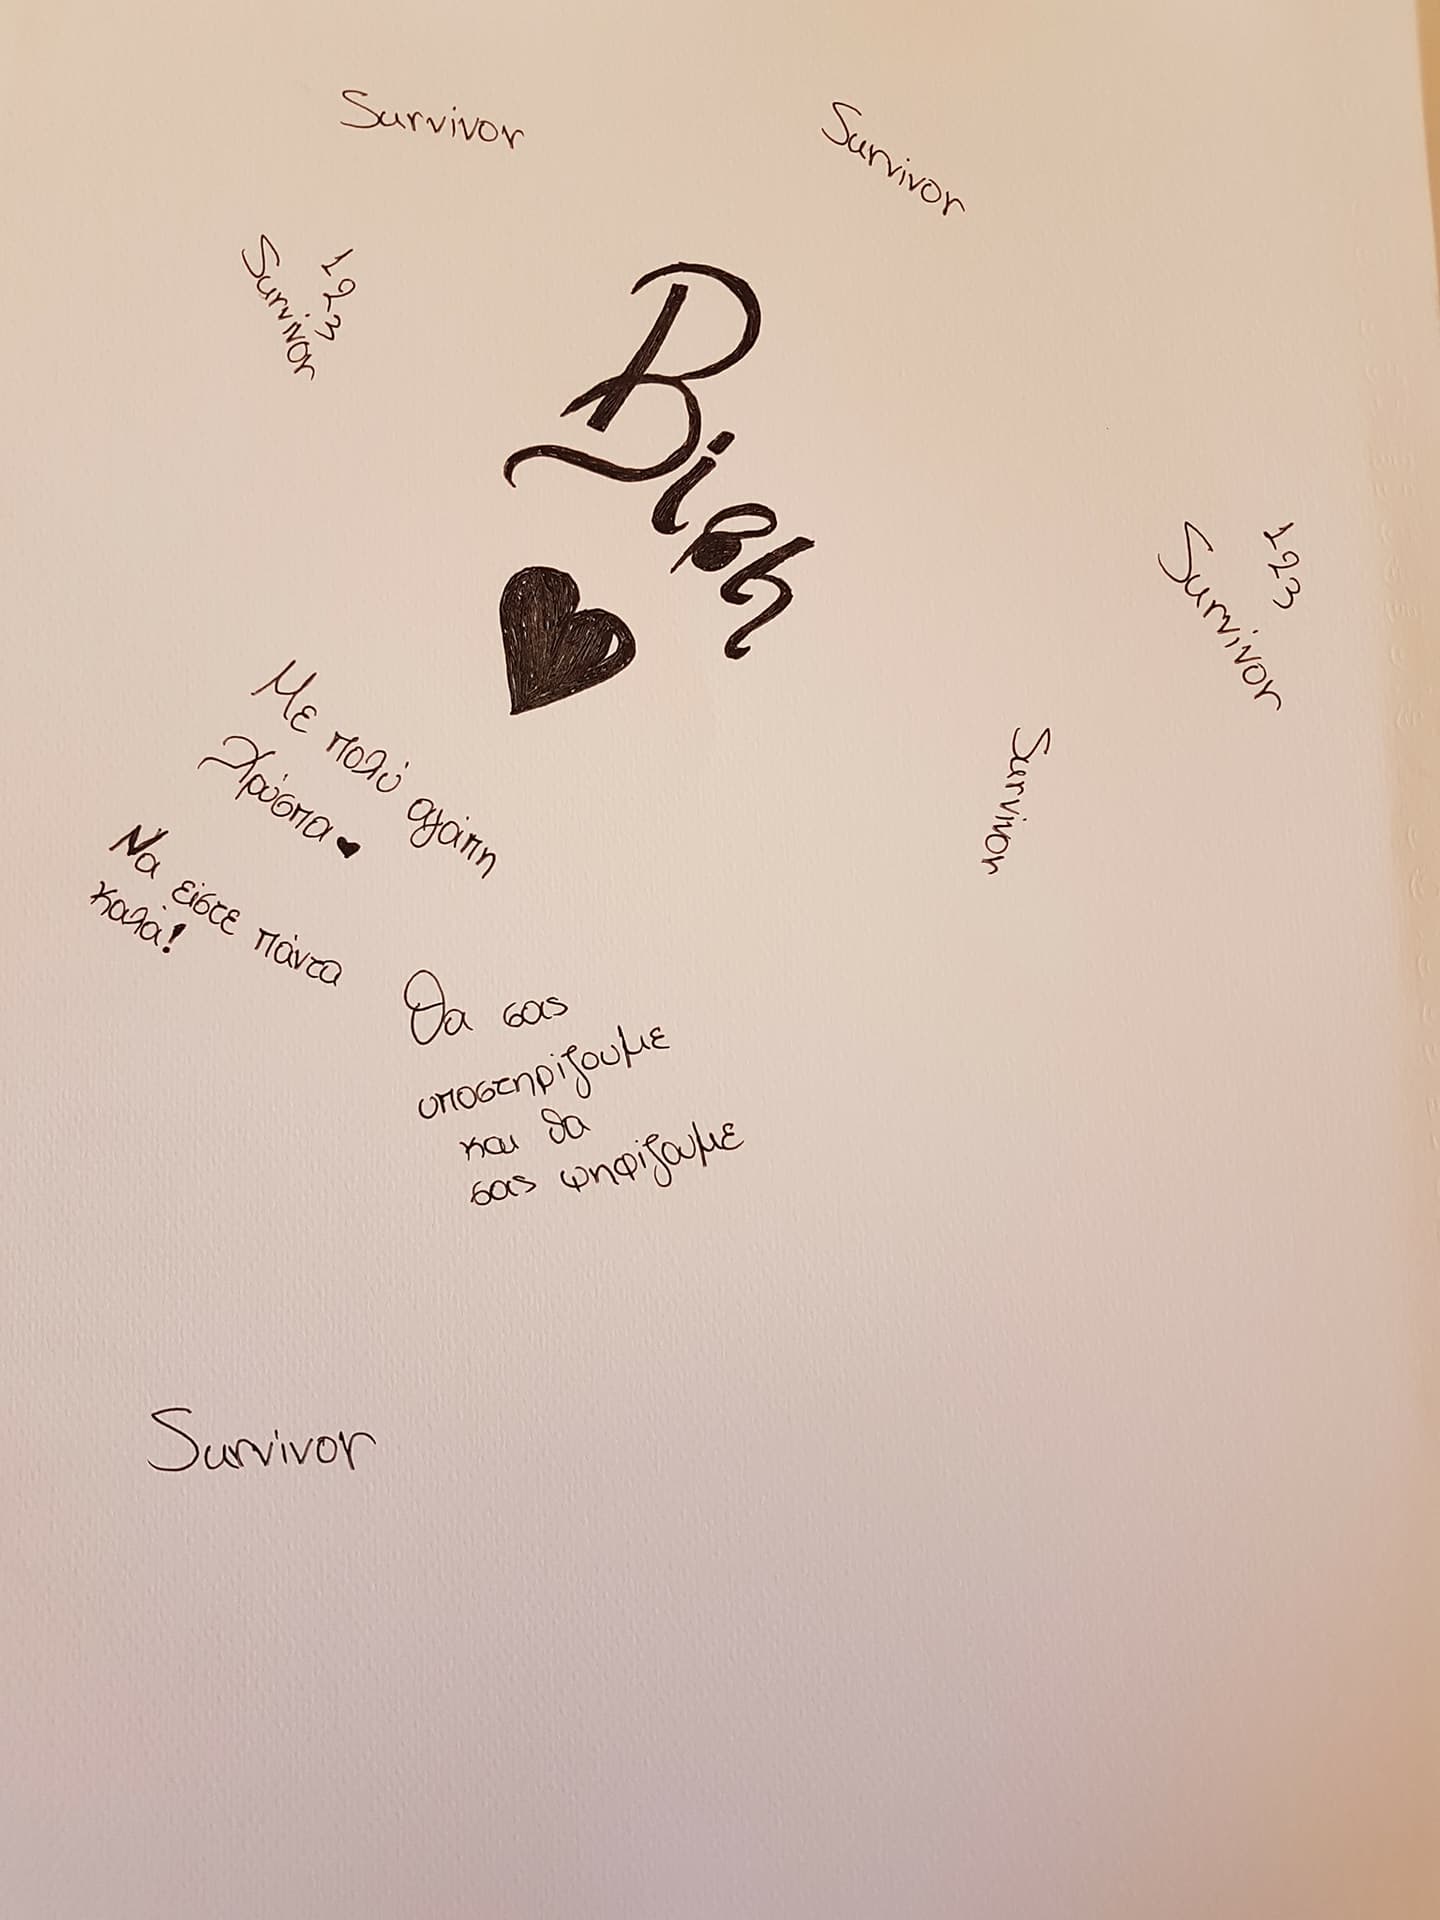 Survivor
Survivor
123
Survivor
Βίβη
123
Survivor
Survivor
Με πολύ αγάπη
Χρύσπα
Να είστε πάντα
καλά!
Θα σας
υποστηρίζουμε
και θα
σας ψηφίζουμε
Survivor